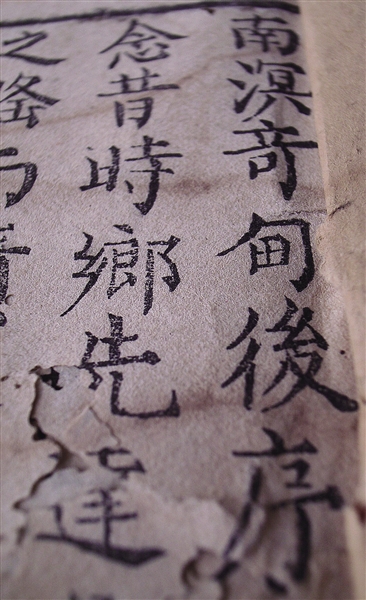 南溟竒甸後序
念昔時鄉先達
之盛